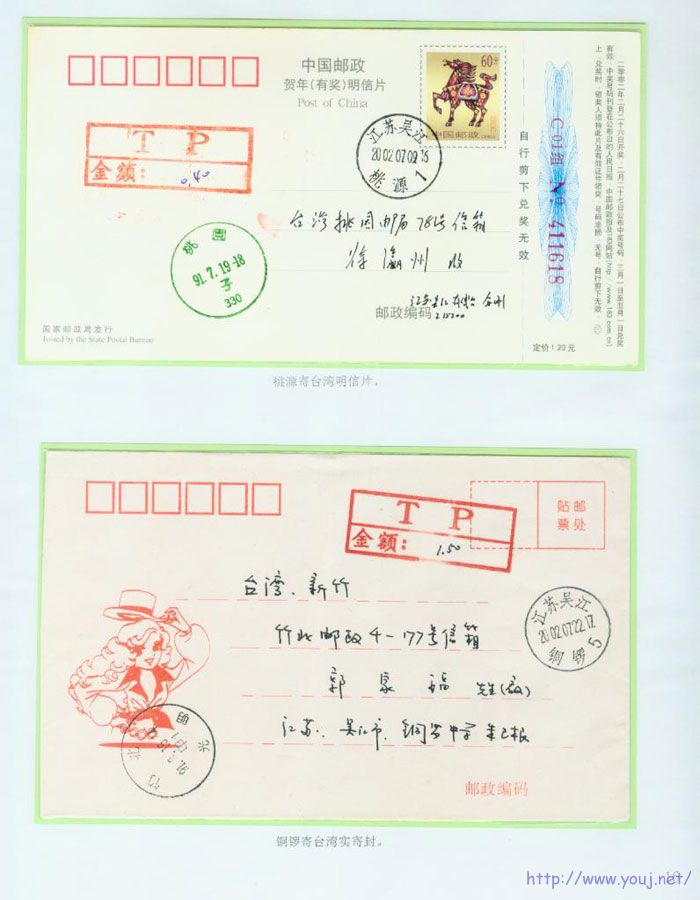 中国邮政
贺年(有奖)明信片
Post of China
60分
中国邮政
江苏吴江
2002.07.09.16
桃源 1
T P
金额:
0.40
台湾桃园邮局78号信箱
徐瀛州 收
桃園
91.7.19-18
子
330
邮政编码
215200
国家邮政局发行
Issued by the State Postal Bureau
自行剪下兑奖无效
C 01组 No. 411618
定价1.20元
二零零二年二月二十六日开奖 二月二十七日公布中奖号码 三月一日至五月一日兑奖
桃源寄台湾明信片。
T P
金额:
1.50
贴邮
票处
台湾、新竹
竹北邮政4-177号信箱
郭泉福 先生(收)
江苏、吴江市、铜罗中学
江苏吴江
2002.07.22.17
铜锣 5
竹北
邮政编码
铜锣寄台湾实寄封。
http://www.youj.net/